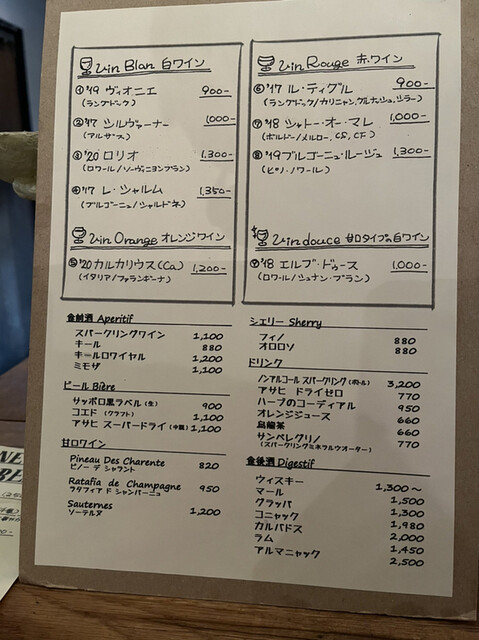 Vin Blan 白ワイン
① '19 ヴィオニエ 900-
(ラングドック)
② '17 シルヴァーナー 1,000-
(アルザス)
③ '20 ロリオ 1,300-
(ロワール/ソーヴィニヨンブラン)
④ '17 レ・シャルム 1,350-
(ブルゴーニュ/シャルドネ)
Vin Orange オレンジワイン
⑤ '20 カルカリウス(Ca) 1,200-
(イタリア/ファランギーナ)
Vin Rouge 赤ワイン
⑥ '17 ル・ティグル 900-
(ラングドック/カリニャン,グルナッシュ,シラー)
⑦ '18 シャトー・オー・マレ 1,000-
(ボルドー/メルロー, CS, CF)
⑧ '19 ブルゴーニュ・ルージュ 1,300-
(ピノ・ノワール)
Vin douce 甘口タイプの白ワイン
⑦ '18 エルブ・ドゥース 1,000-
(ロワール/シュナン・ブラン)
食前酒 Aperitif
スパークリングワイン 1,100
キール 880
キールロワイヤル 1,200
ミモザ 1,100
ビール Bière
サッポロ黒ラベル(生) 900
コエド(クラフト) 1,100
アサヒ スーパードライ(中瓶) 1,100
甘口ワイン
Pineau Des Charente 820
ピノー デ シャラント
Ratafia de Champagne 950
ラタフィア ド シャンパーニュ
Sauternes 1,200
ソーテルヌ
シェリー Sherry
フィノ 880
オロロソ 880
ドリンク
ノンアルコール スパークリング(ボトル) 3,200
アサヒ ドライゼロ 770
ハーブのコーディアル 950
オレンジジュース 660
烏龍茶 660
サンペレグリノ 770
(スパークリングミネラルウオーター)
食後酒 Digestif
ウィスキー 1,300～
マール 1,500
グラッパ 1,300
コニャック 1,980
カルバドス 2,000
ラム 1,450
アルマニャック 2,500